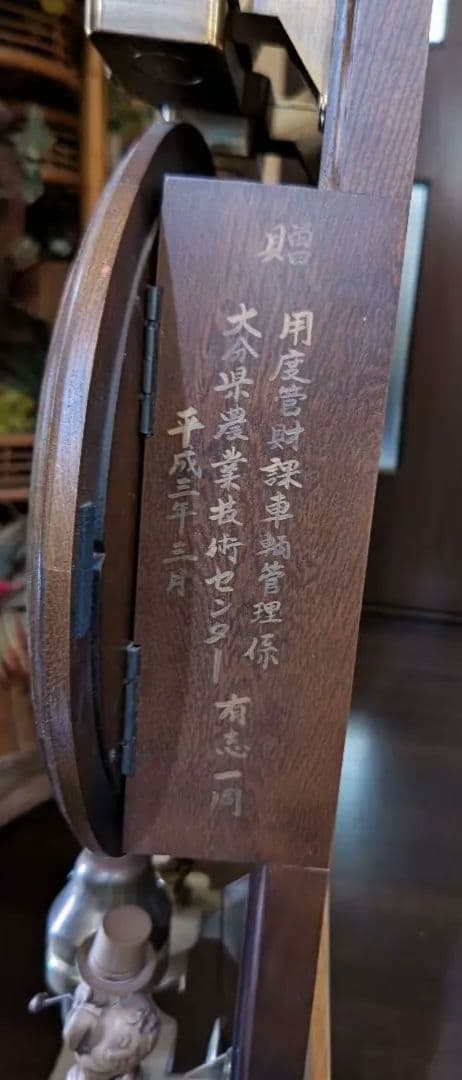 贈
用度管財課車輌管理係
大分県農業技術センター 有志一同
平成三年三月